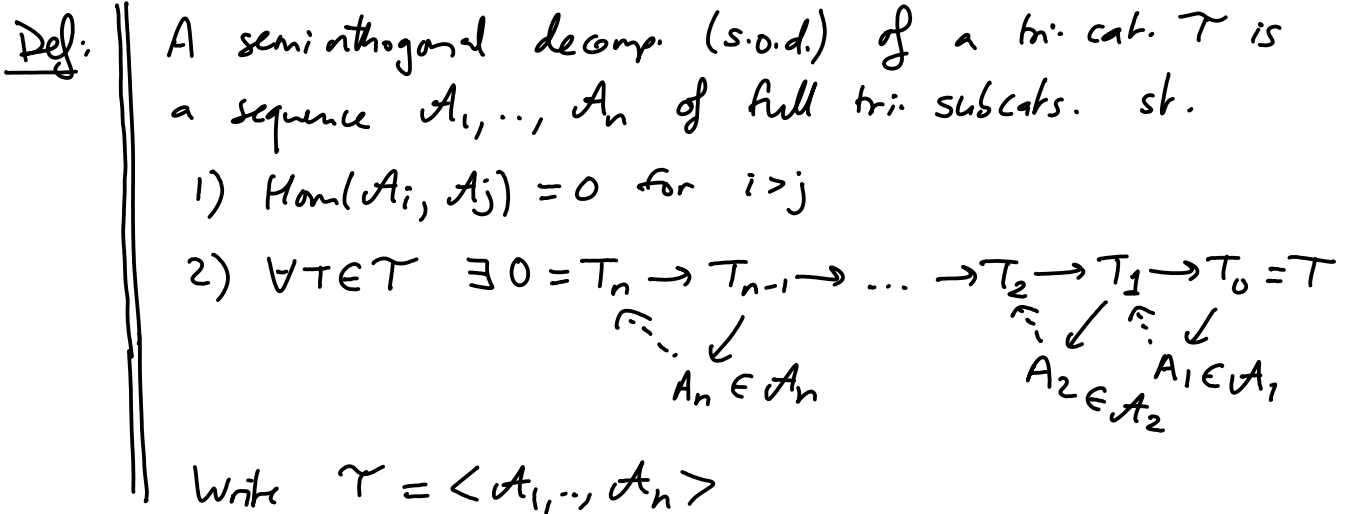 Def: A semiorthogonal decomp. (s.o.d.) of a tri. cat. 𝒯 is
a sequence 𝒜₁,.., 𝒜ₙ of full tri. subcats. st.
1) Hom(𝒜ᵢ, 𝒜ⱼ) = 0 for i>j
2) ∀T∈𝒯 ∃ 0 = Tₙ → Tₙ₋₁ → ... → T₂ → T₁ → T₀ = T
Aₙ ∈ 𝒜ₙ A₂ ∈ 𝒜₂ A₁ ∈ 𝒜₁
Write 𝒯 = <𝒜₁,.., 𝒜ₙ>